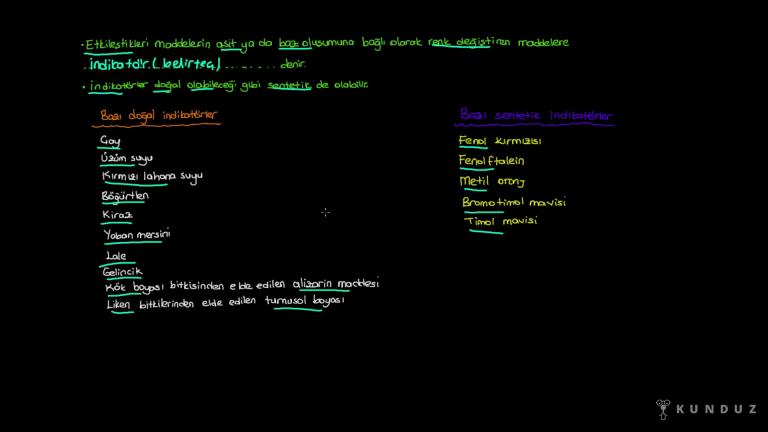 • Etkileştikleri maddelerin asit ya da baz oluşumuna bağlı olarak renk değiştiren maddelere
indikatör (belirteç) ........ denir.
• indikatörler doğal olabileceği gibi sentetik de olabilir.
Bazı doğal indikatörler
Çay
Üzüm suyu
Kırmızı lahana suyu
Böğürtlen
Kiraz
Yaban mersini
Lale
Gelincik
Kök boyası bitkisinden elde edilen alizarin maddesi
Liken bitkilerinden elde edilen turnusol boyası
Bazı sentetik indikatörler
Fenol kırmızısı
Fenolftalein
Metil oranj
Bromotimol mavisi
Timol mavisi
KUNDUZ